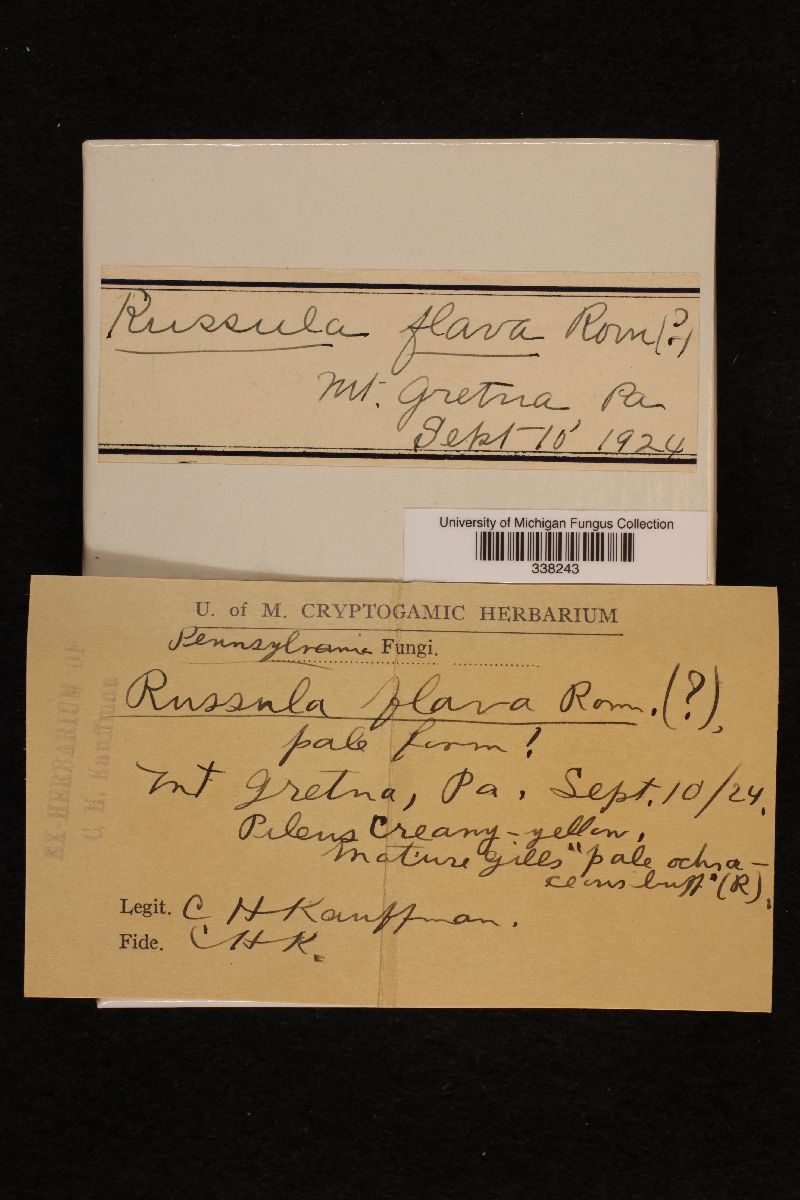 Russula flava Rom(?)
Mt. Gretna, Pa
Sept 10, 1924
University of Michigan Fungus Collection
338243
U. of M. CRYPTOGAMIC HERBARIUM
Pennsylvania Fungi.
Russula flava Rom. (?),
pale form!
Mt Gretna, Pa. Sept. 10/24.
Pileus creamy-yellow,
mature gills "pale ochra-
ceous buff" (R).
Legit. C H Kauffman.
Fide. C H K.
EX-HERBARIUM OF
C. H. Kauffman